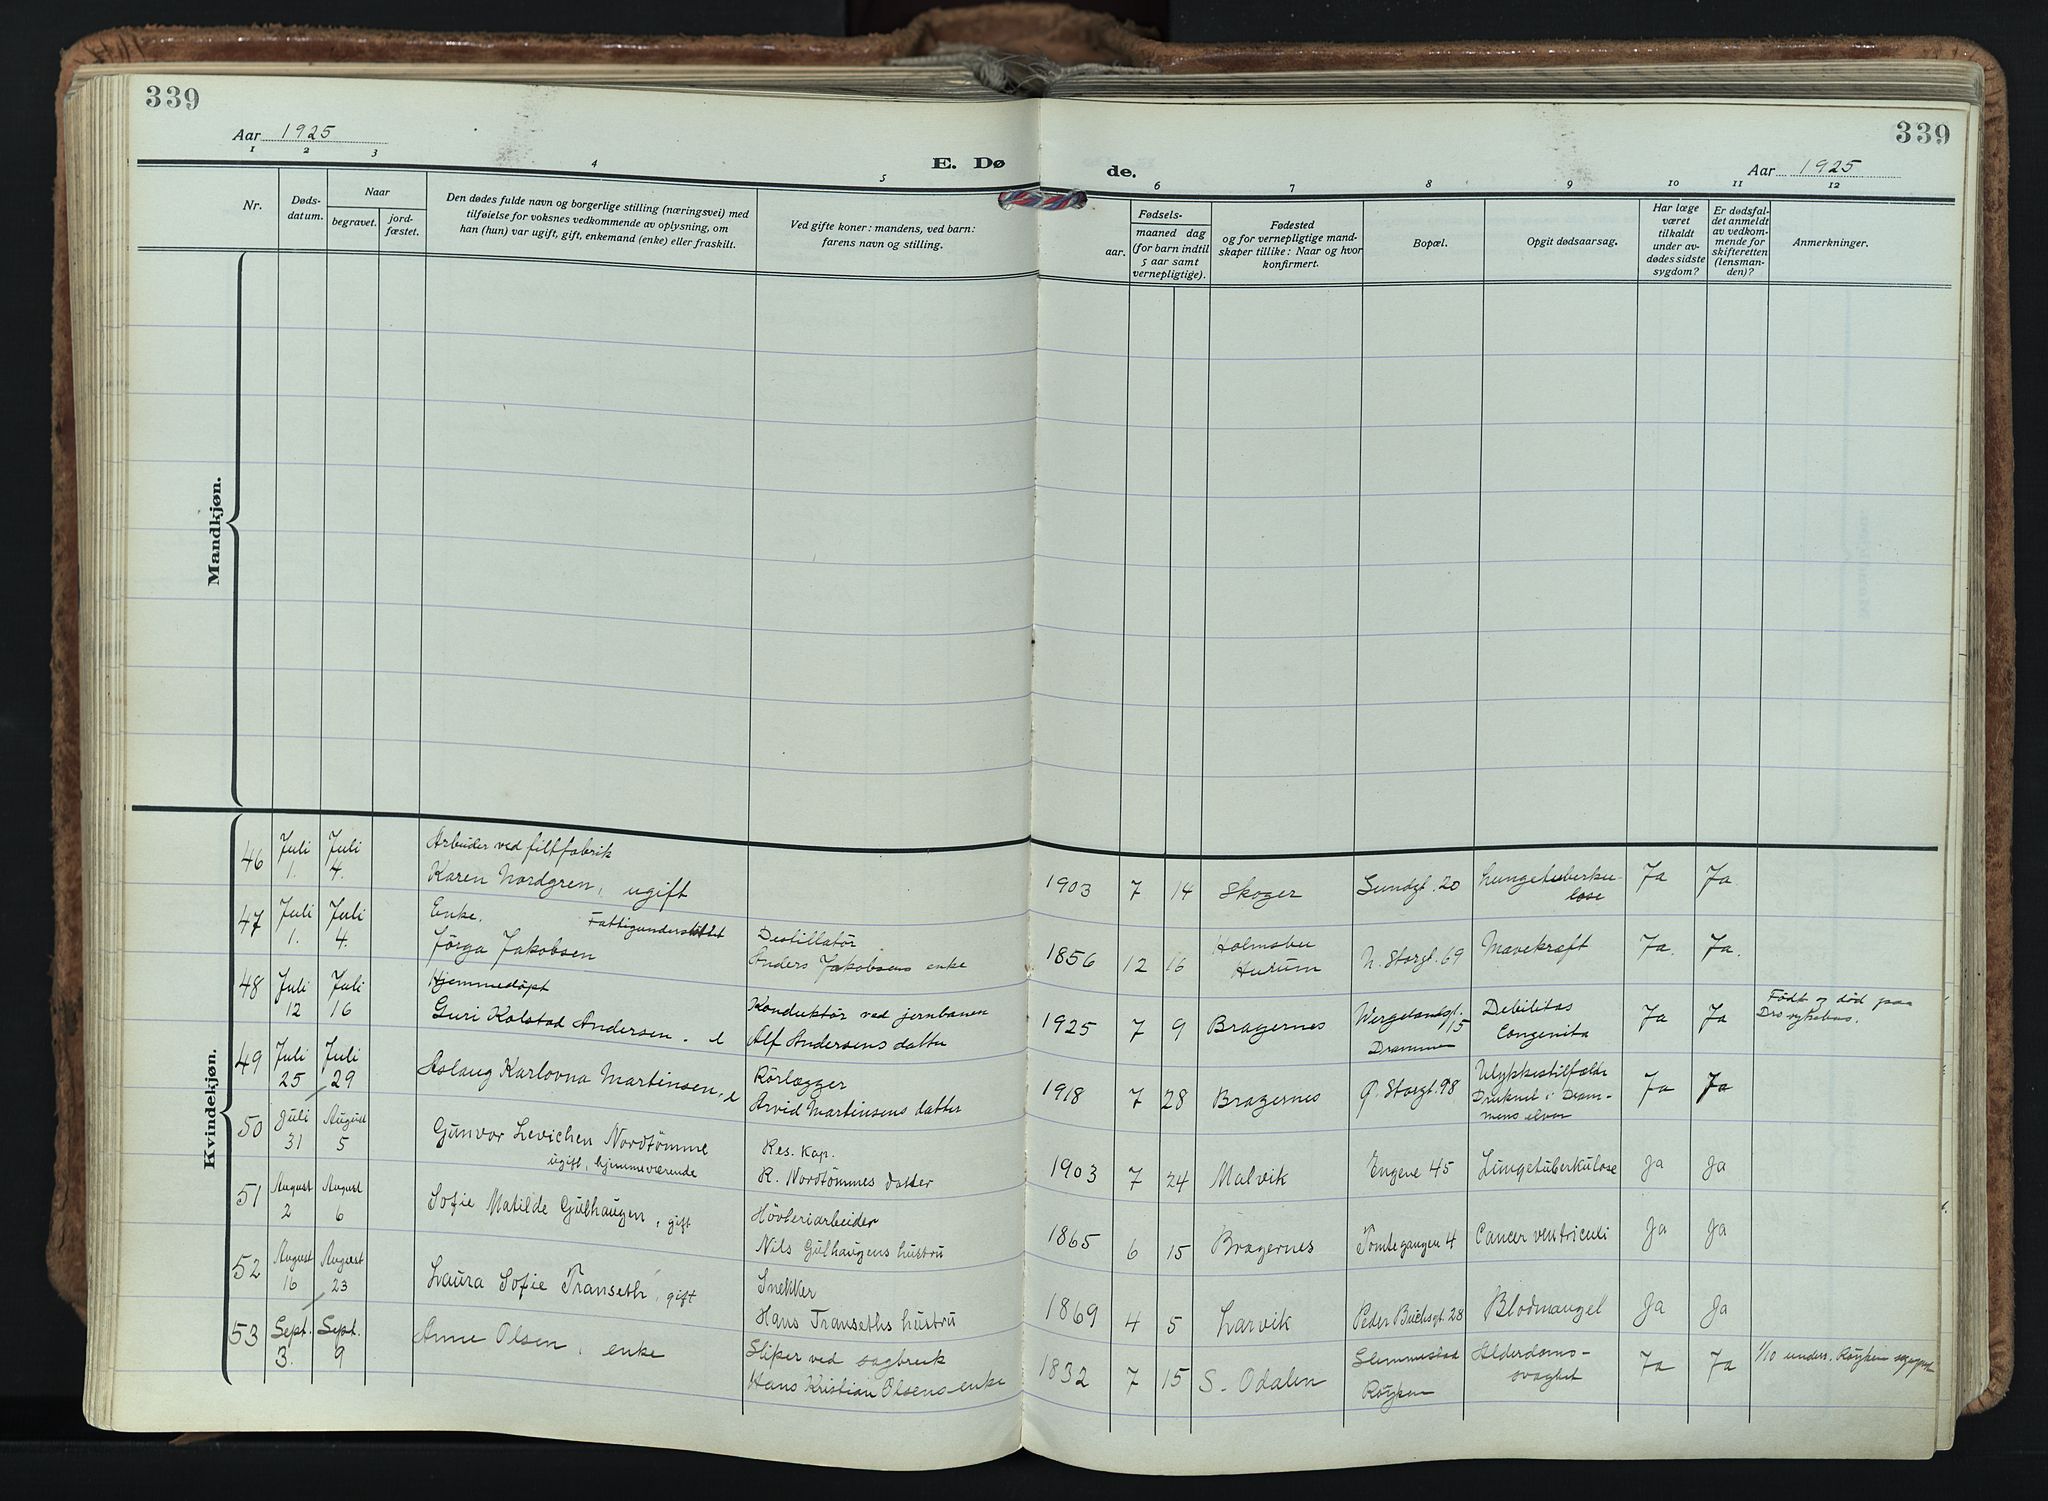 339
339
Aar 1925
E. Dø
de.
Aar 1925
1 2 3 4 5 6 7 8 9 10 11 12
Nr.
Døds-
datum.
Naar
begravet.
jord-
fæstet.
Den dødes fulde navn og borgerlige stilling (næringsvei) med
tilføielse for voksnes vedkommende av oplysning, om
han (hun) var ugift, gift, enkemand (enke) eller fraskilt.
Ved gifte koner: mandens, ved barn:
farens navn og stilling.
Fødsels-
aar.
maaned dag
(for barn indtil
5 aar samt
vernepligtige).
Fødested
og for vernepligtige mand-
skaper tillike: Naar og hvor
konfirmert.
Bopæl.
Opgit dødsaarsag.
Har læge
været
tilkaldt
under av-
dødes sidste
sygdom?
Er dødsfal-
det anmeldt
av vedkom-
mende for
skifteretten
(lensman-
den)?
Anmerkninger.
Mandkjøn.
Kvindekjøn.
46 Juli 1. Juli 4.
Arbeider ved filtfabrik
Karen Nordgren, ugift
1903 7 14 Skoger Lundgt. 20 Lungetuberku-
lose
Ja Ja
47 Juli 1. Juli 4.
Enke. Fattigunderstøttet
Jörga Jakobsen
Destillatør
Anders Jakobsens enke
1856 12 16 Holmsbu
Hurum
N. Storgt. 69 Mavekræft Ja. Ja.
48 Juli 12 Juli 16
Hjemmedøpt
Guri Kolstad Andersen. e
Konduktør ved jernbanen
Alf Andersens datter
1925 7 9 Bragernes Wergelandsgt.
15
Drammen
Debilitas
Congenita
Ja Ja
Født og død paa
Dr. sykehus.
49 Juli 25 Juli 29
Aslaug Karlovna Martinsen, e
Rørlægger
Arvid Martinsens datter
1918 7 28 Bragernes Ø. Storgt. 98
Ulykkestilfælde
Druknet i Dram-
mens elven
Ja Ja
50 Juli 31 August 5
Gunvor Levichen Nordtømme
ugift, hjemmeværende
Res. Kap.
R. Nordtømmes datter
1903 7 24 Malvik Engene 45 Lungetuberkulose Ja Ja
51 August 2 August 6
Sofie Matilde Gulhaugen, gift
Høvleriarbeider
Nils Gulhaugens hustru
1865 6 15 Bragernes Tomtegangen 4 Cancer ventriculi Ja Ja
52 August 16 August 23
Laura Sofie Transeth, gift
Snekker
Hans Transeths hustru
1869 4 5 Larvik Peder Buchsgt. 28 Blodmangel Ja Ja
53 Sept. 3. Sept. 9
Anne Olsen, enke
Sliper ved sagbruk
Hans Kristian Olsens enke
1832 7 15 S. Odalen Slemmestad
Røyken
Alderdoms-
svaghet
Ja Ja 1/10 unders. Røyken